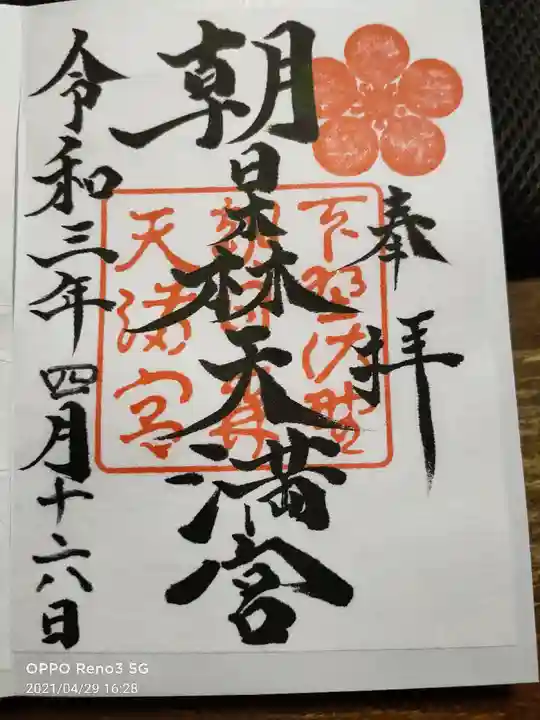 奉拝
朝日森天満宮
令和三年四月十六日
下野佐野
朝日森
天満宮
OPPO Reno3 5G
2021/04/29 16:28